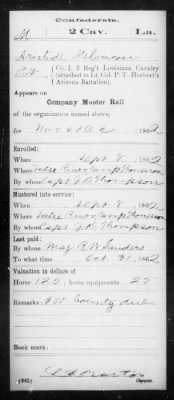 Confederate.
M 2 Cav. La.
Aristide
Pvt., Co. I, 2 Reg't Louisiana Cavalry
(attached to Lt. Col. P. T. Herbert's
Arizona Battalion).
Appears on
Company Muster Roll
of the organization named above,
for Nov & Dec, 1862.
Enrolled:
When Sept 8, 1862
Where Camp Thompson
By whom Capt Thompson
Mustered into service:
When Sept 8, 1862
Where Camp Thompson
By whom Capt Thompson
Last paid:
By whom Maj R W Sanders
To what time Oct 31, 1862
Valuation in dollars of
Horse, 120; horse equipments 25
Remarks: $50 bounty due
Book mark:
(642)
Copyist.